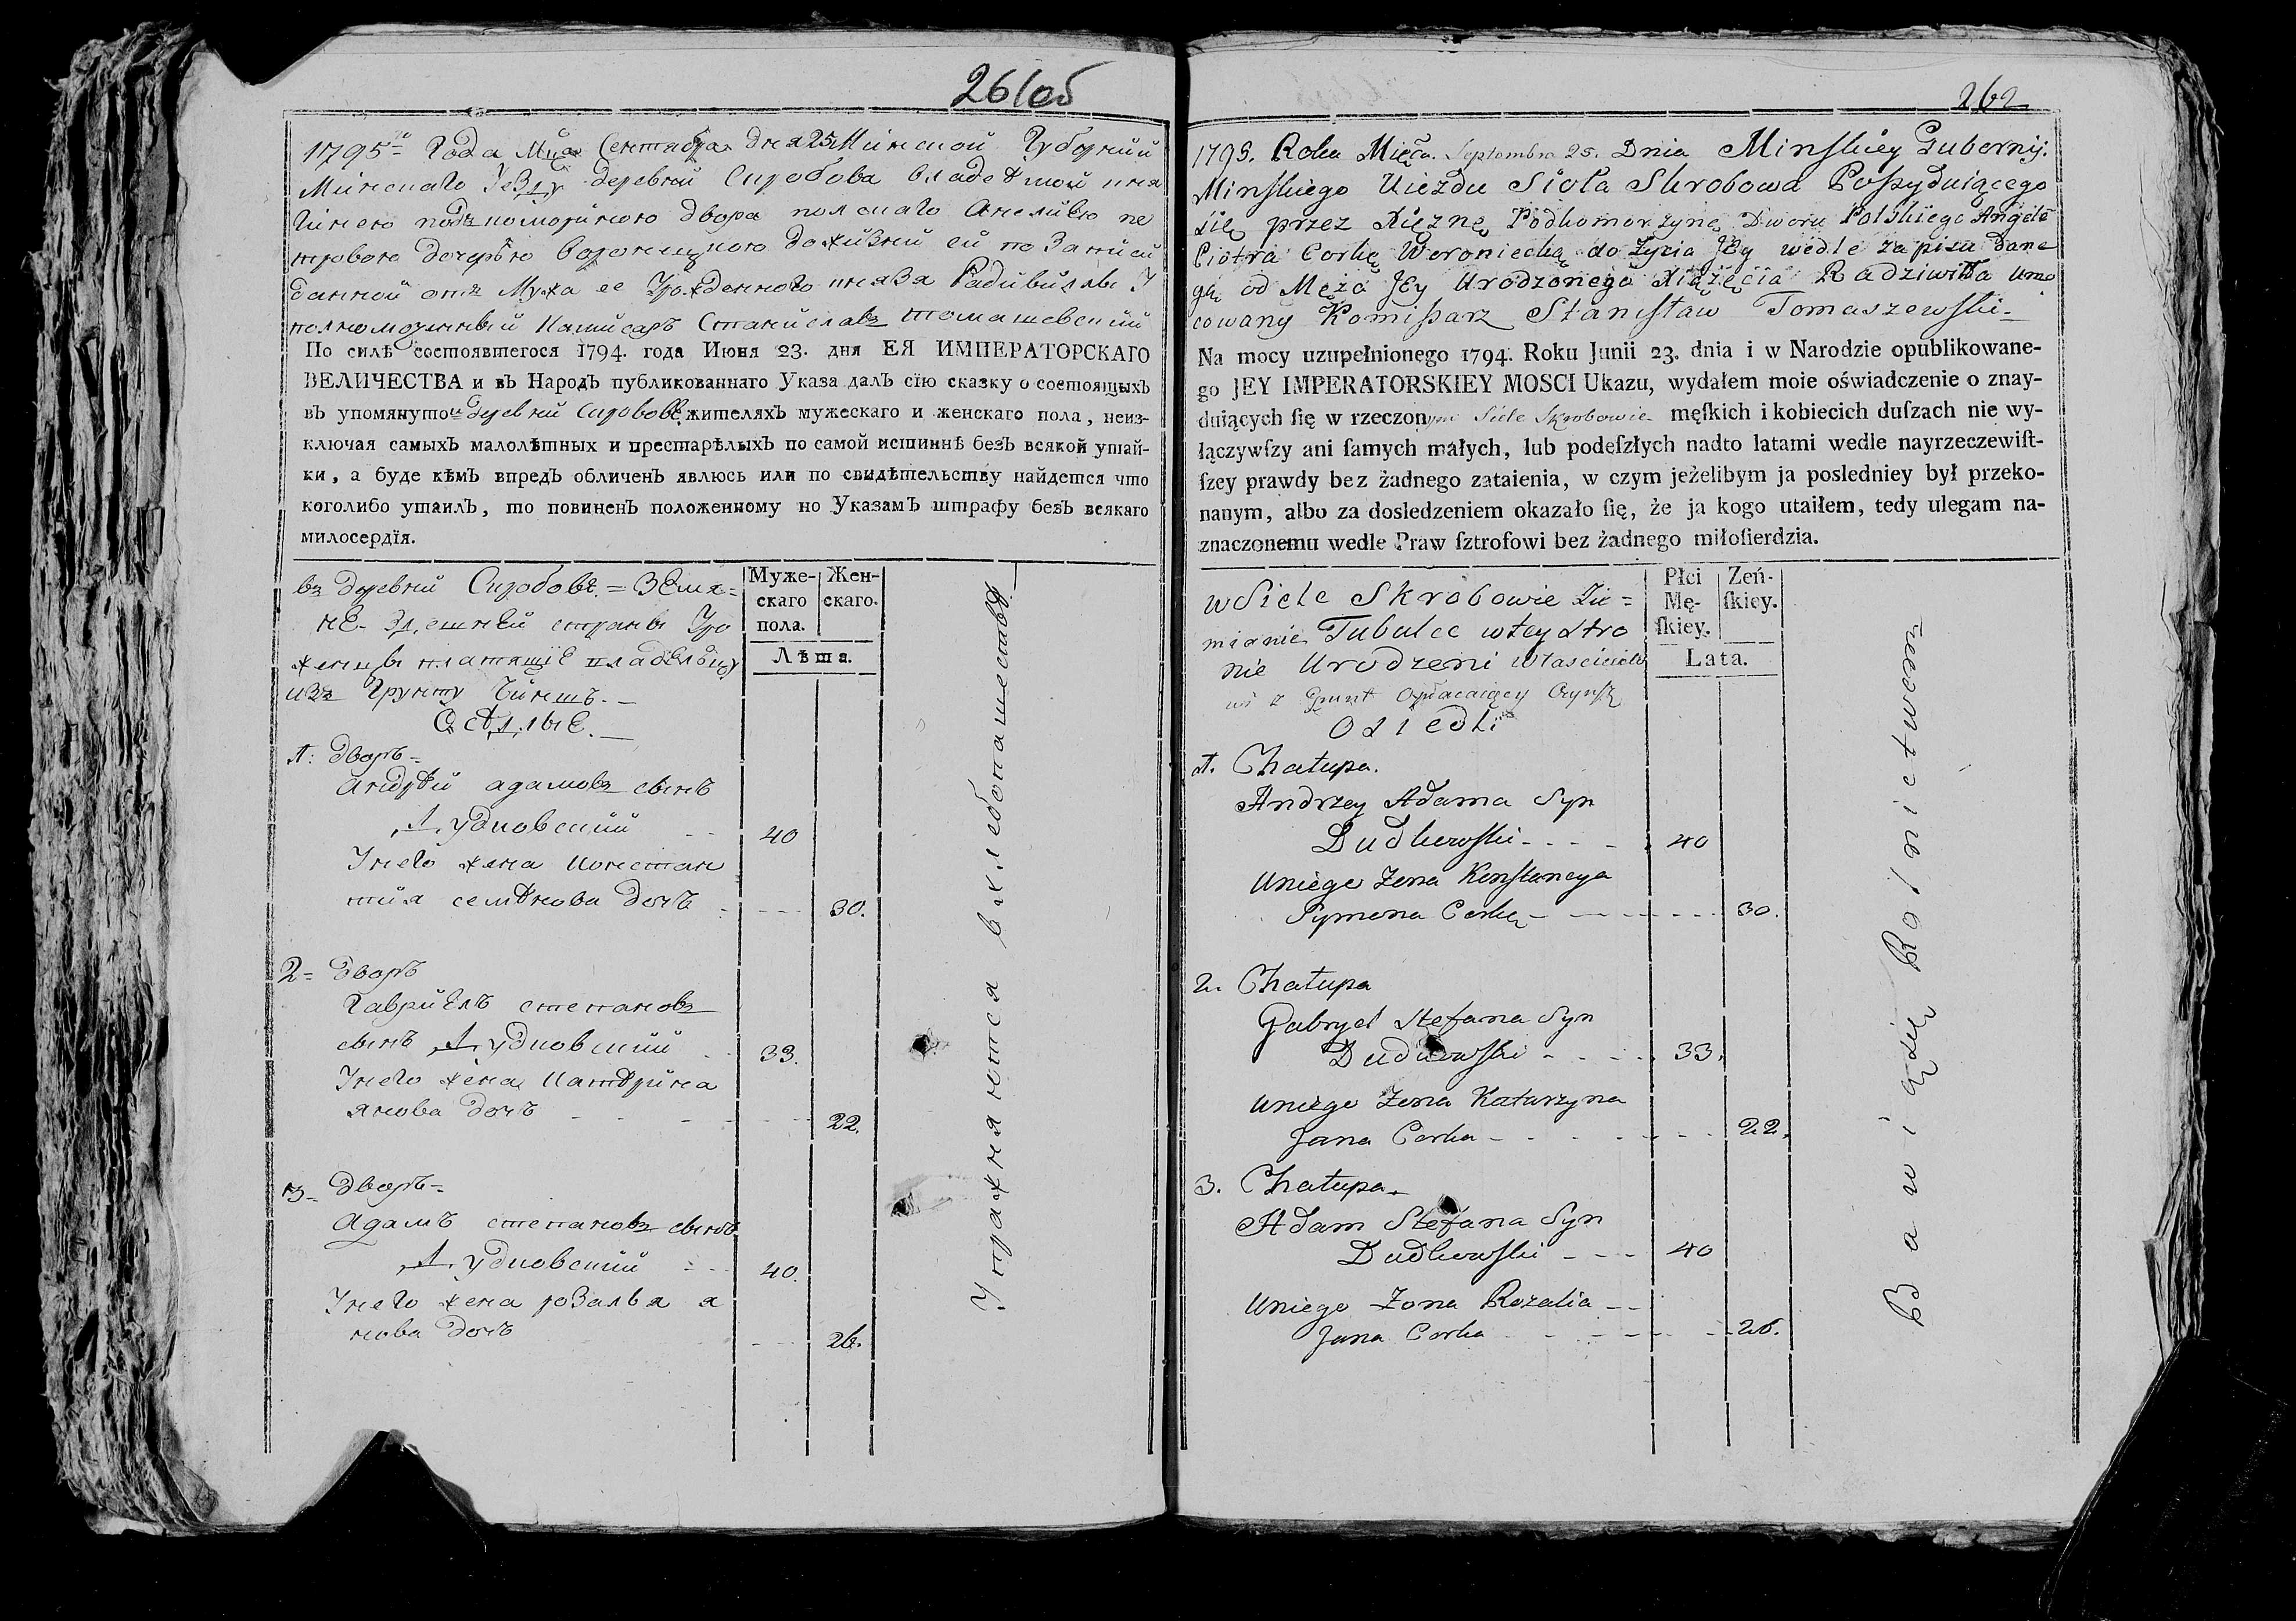 261об
1795го Года Мца Сентября дня 25 Минской Губернии
Минскаго Уезду деревни Скробова владеемой кня
гинею подкомориною двора полскаго Анелиею пе
тровою дочерью Воронецкою до жизни ей по записи
данной отъ Мужа ее Урожденного князя Радивилла У
полномоченный Комисаръ Станиславъ Томашевский
По силѣ состоявшегося 1794. года Июня 23. дня ЕЯ ИМПЕРАТОРСКАГО
ВЕЛИЧЕСТВА и въ Народъ публикованнаго Указа далъ сїю сказку о состоящыхъ
въ упомянутой деревни Скробове жителяхъ мужескаго и женскаго пола, неиз-
ключая самыхъ малолѣтных и престарѣлыхъ по самой истиннѣ безъ всякой утай-
ки, а буде кѣмъ впредь обличенъ явлюсь или по свидѣтельству найдется что
коголибо утаилъ, то повиненъ положенному по Указамъ штрафу безъ всякаго
милосердїя.
въ деревни Скробовѣ = Земя=
не здешней страны Уро
женцы платящие владелцу
изъ Грунту Чиншъ. —
Оселлые. —
Муже-
скаго
пола.
Жен-
скаго.
Лѣта.
1: дворъ =
Андрей адамовъ сынъ
Дудковский - - 40
Унего жена Констан
тия семенова дочь - - - - 30.
2 = дворъ
Гавриелъ степановъ
сынъ Дудковский - 33.
Унего жена Катерина
янова дочь - - - - - 22.
3 = дворъ =
Адамъ степановъ сынъ
Дудковский - - 40.
Унего жена розалья я
нова дочь - - - 26.
Упражняются в хлебопашестве.
262
1795. Roku Mięca. Septembra 25. Dnia Minskiey Gubernij.
Minskiego Uiezdu Sioła Skrobowa Possyduiącego
się przez Xięznę Podkomorzynę Dworu Polskiego Angelę
Piotra Corkę Woroniecką do życia Jey wedle zapisu dane
go od Męża Jey Urodzonego Xiążęcia Radziwiłła umo
cowany Komissarz Stanisław Tomaszewski —
Na mocy uzupełnionego 1794. Roku Junii 23. dnia i w Narodzie opublikowane-
go JEY IMPERATORSKIEY MOSCI Ukazu, wydałem moie oświadczenie o znay-
duiących ſię w rzeczonym Siele Skrobowie męſkich i kobiecich duſzach nie wy-
łączywſzy ani ſamych małych, lub podeſzłych nadto latami wedle nayrzeczewiſt-
ſzey prawdy bez żadnego zataienia, w czym jeżelibym ja posledniey był przeko-
nanym, albo za dosledzeniem okazało ſię, że ja kogo utaiłem, tedy ulegam na-
znaczonemu wedle Praw ſztrofowi bez żadnego miłoſierdzia.
w Siele Skrobowie Zie =
mianie Tubalec wtey stro
nie Urodzeni własciciele
wi z Grunt Opłacaiący Czynsz
Osiedli
Płci
Mę-
ſkiey.
Zeń-
ſkiey.
Lata.
1. Chałupa.
Andrzey Adama Syn
Dudkowski - - - - 40
Uniego Zona Konstancya
Symona Corka - - - - - - - 30.
2. Chałupa
Gabryel Stefana Syn
Dudkowski - - - - 33.
Uniego Zona Katarzyna
Jana Corka - - - - - - 22.
3. Chałupa.
Adam Stefana Syn
Dudkowski - - - 40
Uniego Zona Rozalia - -
Jana Corka - - - - - 26.
Bawią się Rolnictwem